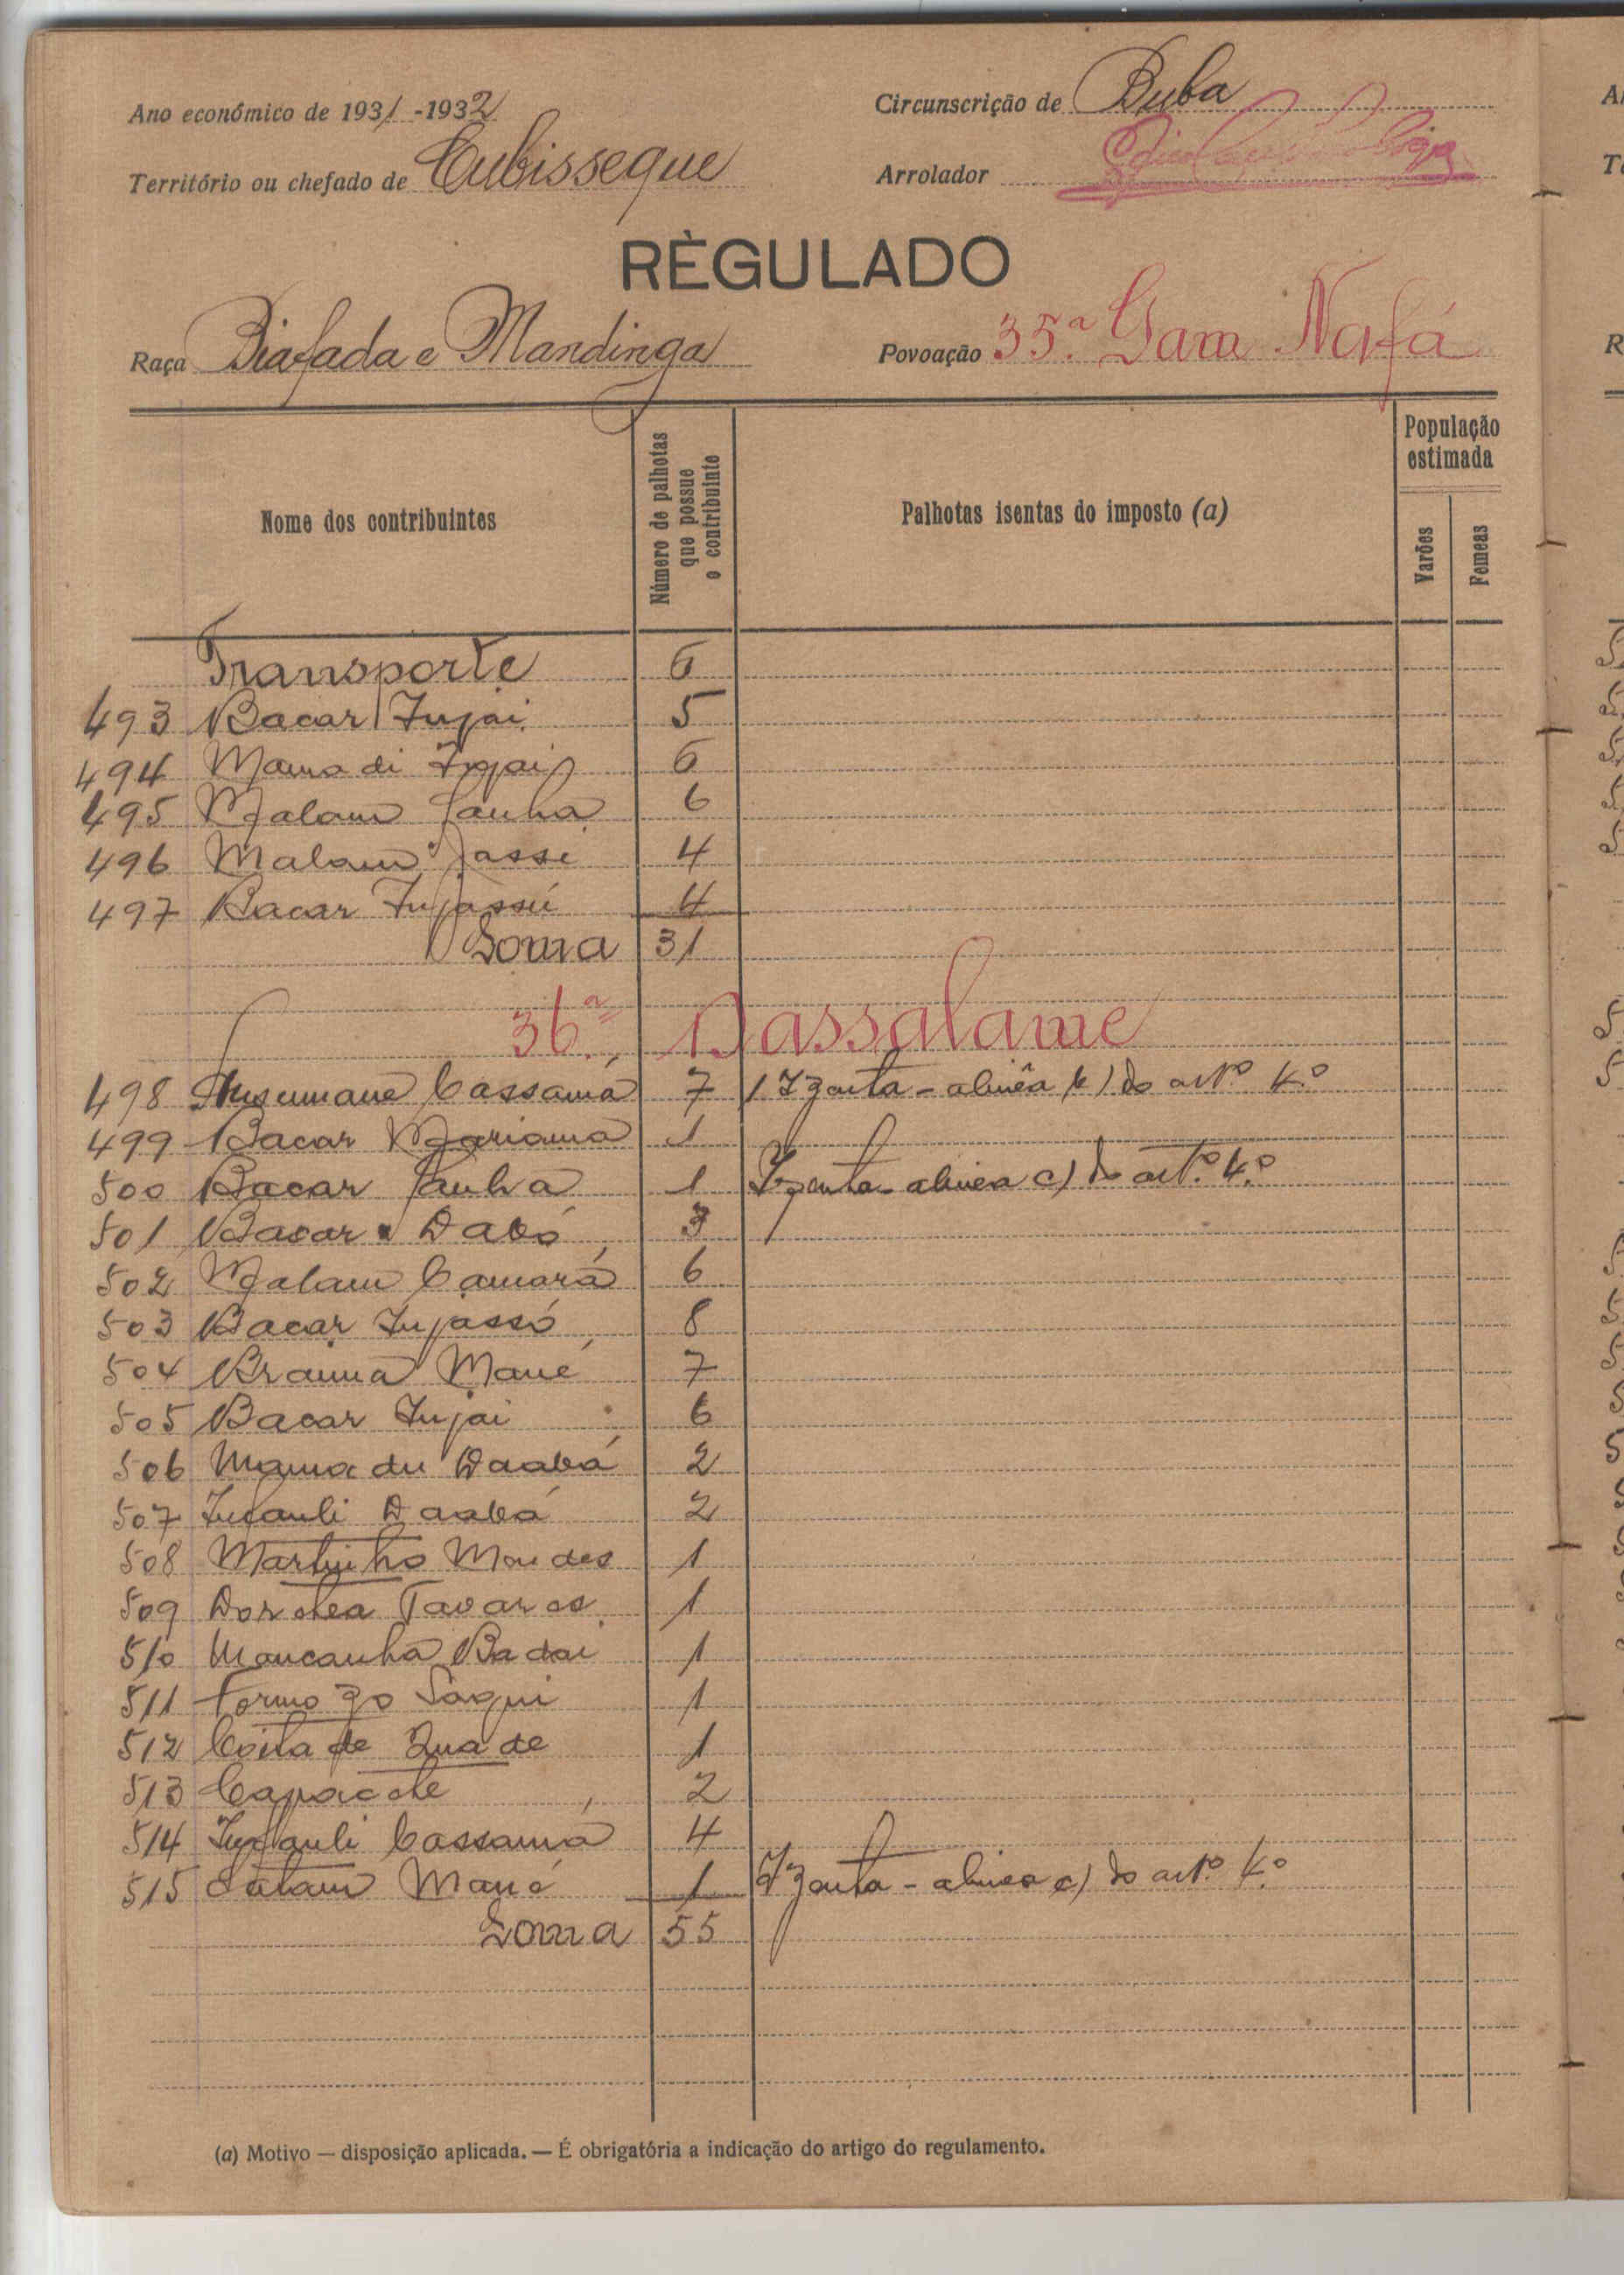 Ano económico de 1931-1932 Circunscrição de Buba
Território ou chefado de Cubisseque Arrolador
RÈGULADO
Raça Biafada e Mandinga Povoação 35.ª Gam Nafá
Nome dos contribuintes Número de palhotas que possue o contribuinte Palhotas isentas do imposto (a) População estimada Varões Femeas
Transporte 6
493 Bacar Injai 5
494 Mamadi Injai 6
495 Malam Sanhá 6
496 Malam Jassi 4
497 Bacar Injassú 4
Soma 31
36.ª Dassalame
498 Ansumane Cassamá 7 1 Izenta - alinêa b) do art.º 4.º
499 Bacar Mariama 1
500 Bacar Sanhá 1 Izenta - alinea c) do art.º 4.º
501 Bacar Dabó 3
502 Malam Camará 6
503 Bacar Injassó 8
504 Braima Mané 7
505 Bacar Injai 6
506 Mamadu Daabá 2
507 Infanli Daabá 2
508 Martinho Mendes 1
509 Tavares 1
510 Mancanha Badai 1
511 Formozo Sagui 1
512 1
513 2
514 Infanli Cassamá 4
515 Mané 1 Izenta - alinea c) do art.º 4.º
Soma 55
(a) Motivo — disposição aplicada. — É obrigatória a indicação do artigo do regulamento.